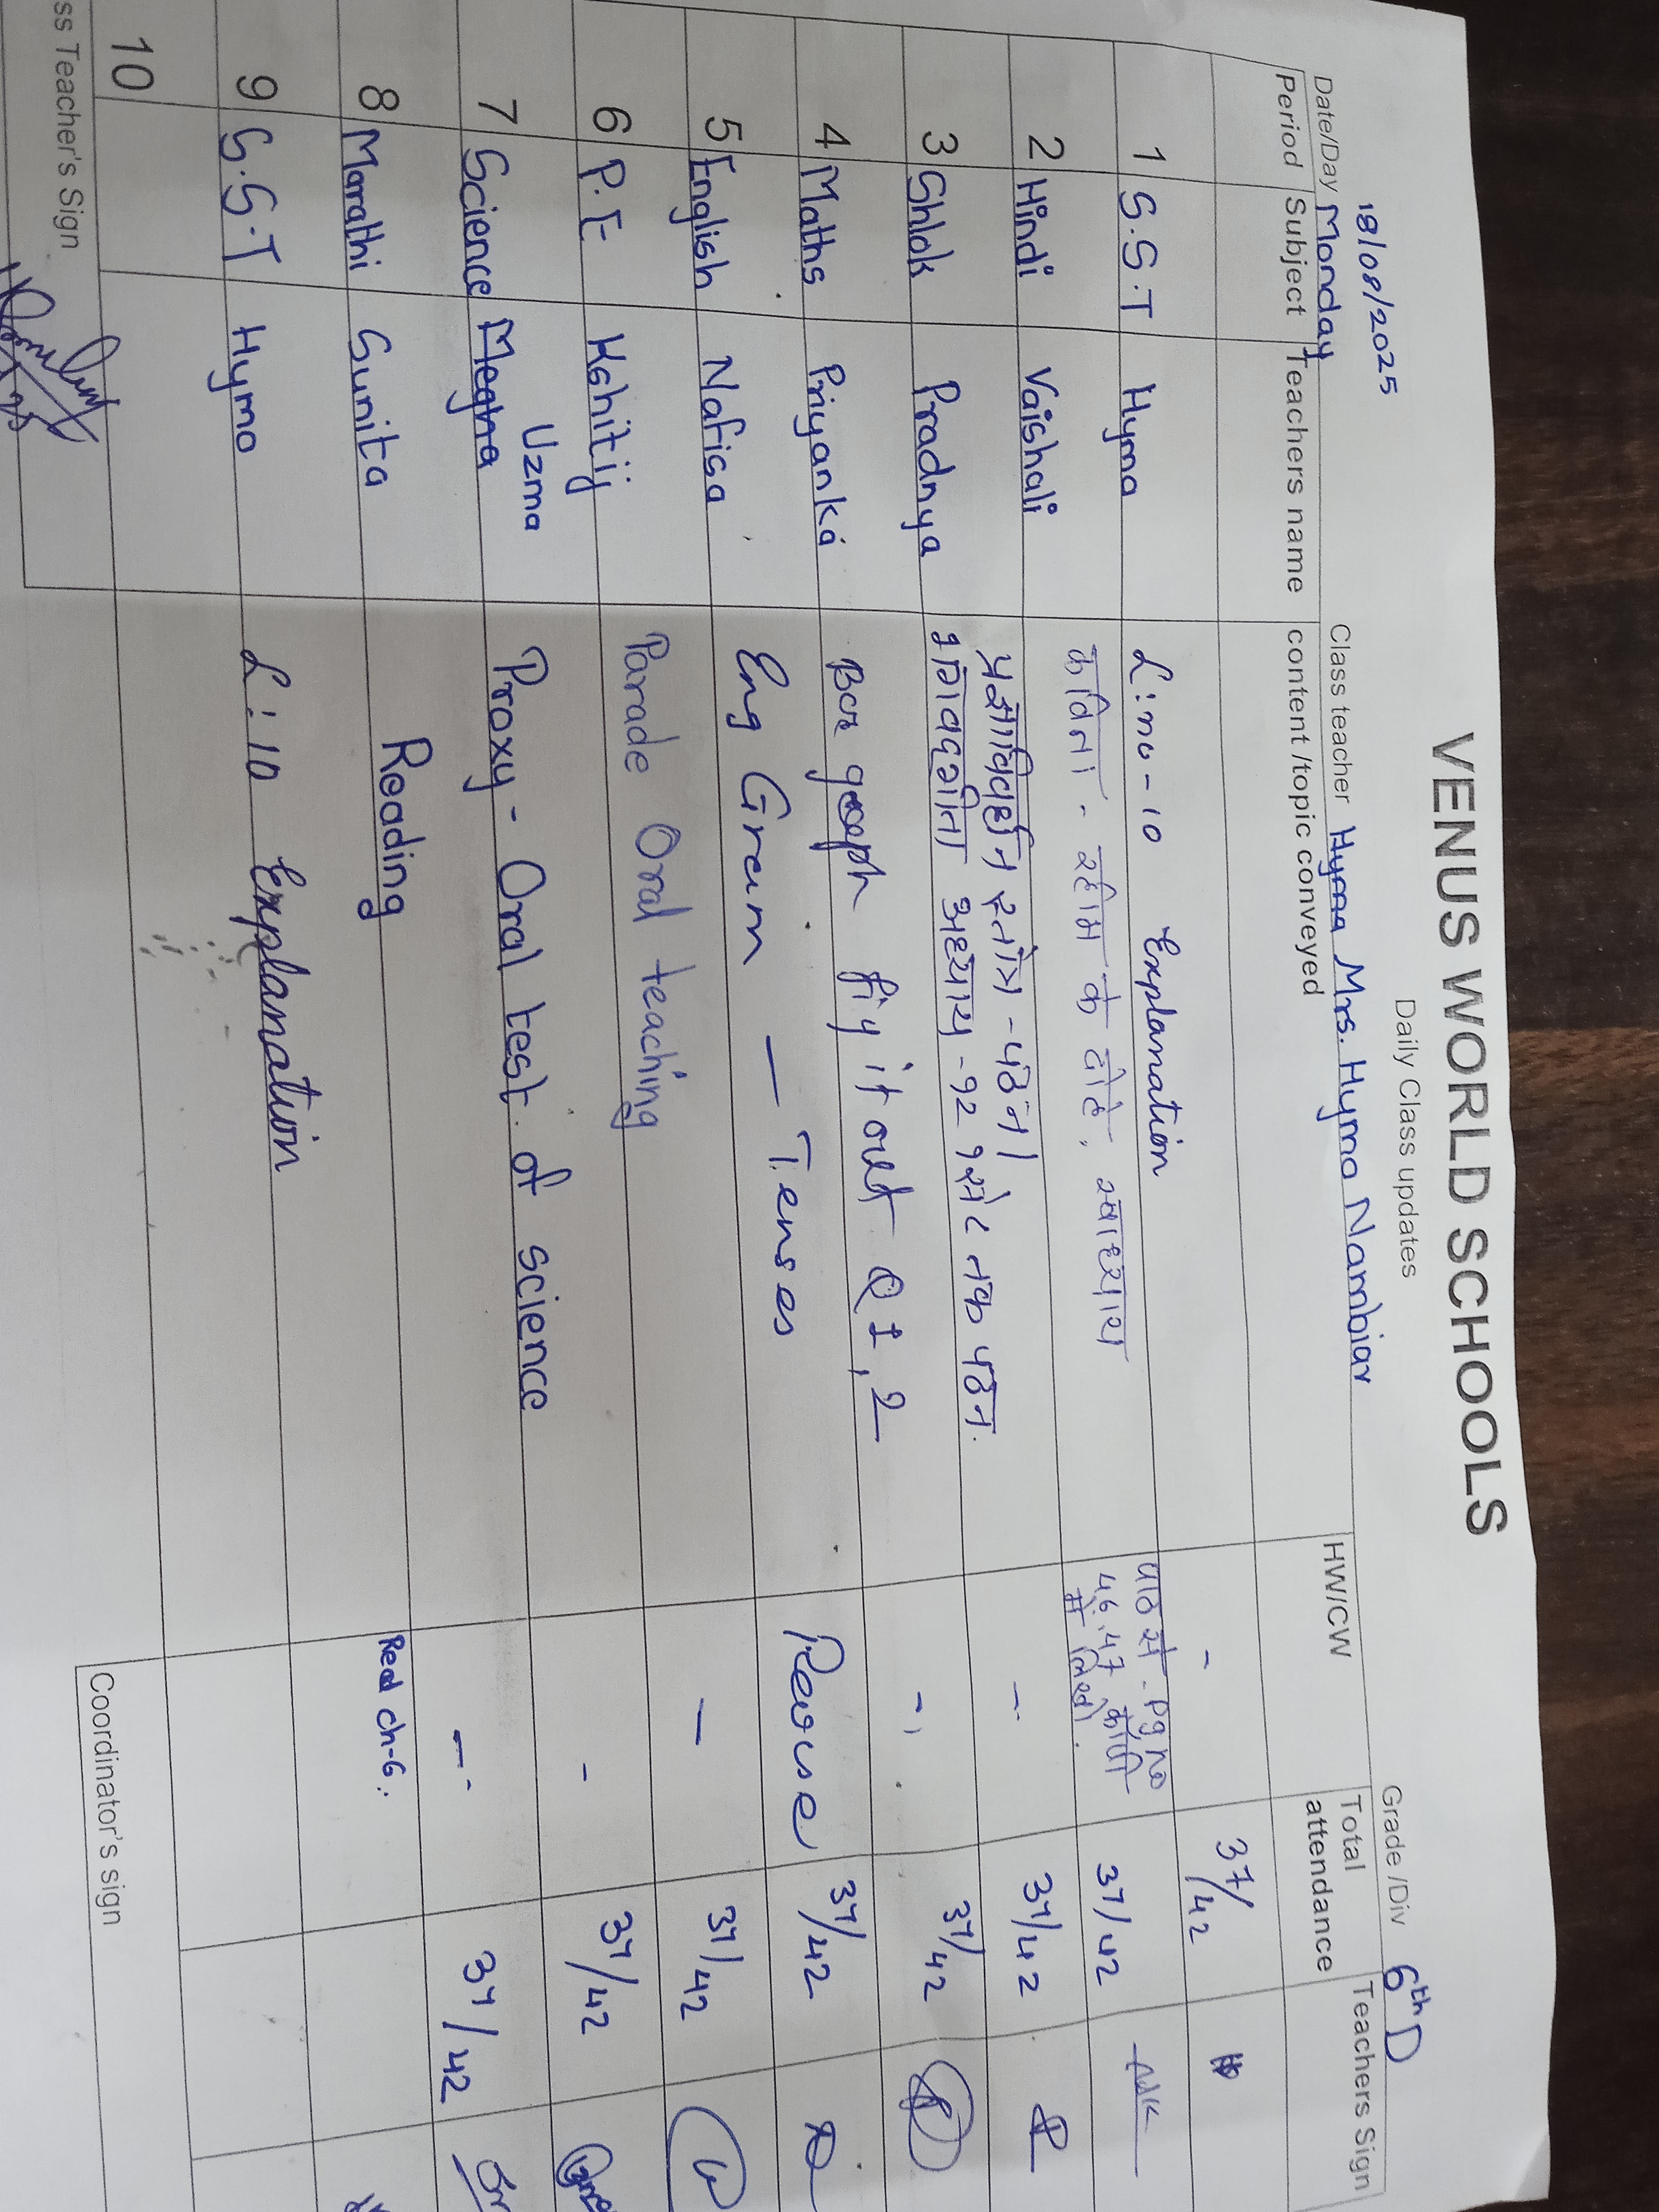 VENUS WORLD SCHOOLS
Daily Class updates
18/08/2025
Date/Day Monday Class teacher Hyma Mrs. Hyma Nambiar Grade /Div 6th D
Period Subject Teachers name content /topic conveyed HW/CW Total attendance Teachers Sign
1 S.S.T Hyma L:no-10 Explanation - 37/42
2 Hindi Vaishali कविता - रहीम के दोहे, स्वाध्याय पाठ से - Pg no 46,47 कॉपी में लिखो. 37/42
3 Shlok Pradnya प्रज्ञाविवर्धन स्तोत्र - पठन। भगवदगीता अध्याय - १२ १ से ८ तक पठन. - 37/42
4 Maths Priyanka Bar graph fig it out Q 1, 2 - 37/42
5 English Nafisa Eng Gram — Tenses Revise 37/42
6 P.E Kshitij Parade Oral teaching - 37/42
7 Science Megha Uzma Proxy - Oral test of science - 37/42
8 Marathi Sunita Reading - 37/42
9 S.S.T Hyma L:10 Explanation Read ch-6.
10
ss Teacher's Sign Coordinator's sign